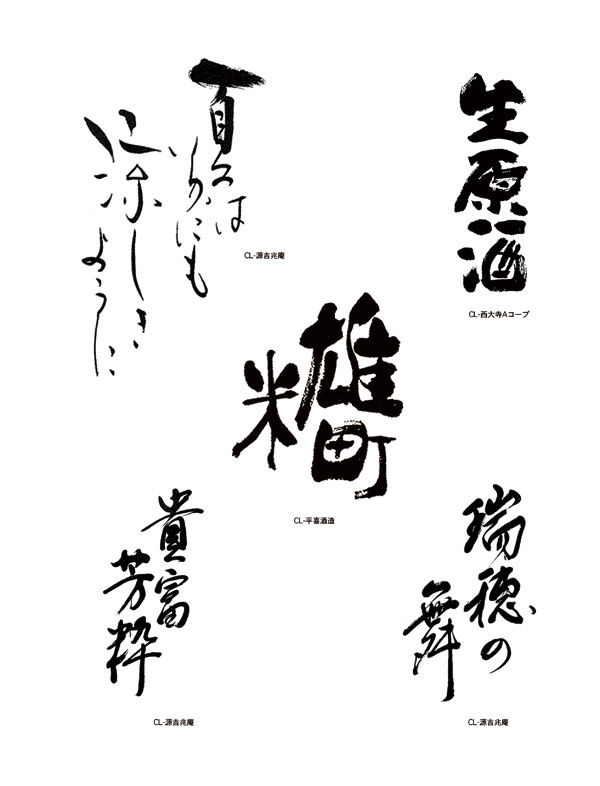 夏は
いかにも
涼しき
ように
CL-源吉兆庵
生原酒
CL-西大寺Aコープ
雄町
米
CL-平喜酒造
貴富
芳粋
CL-源吉兆庵
瑞穂の
舞
CL-源吉兆庵